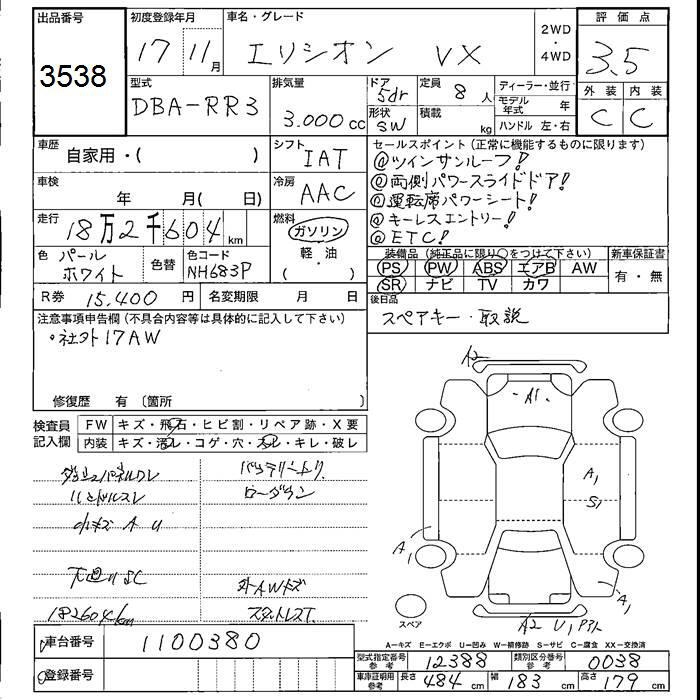 出品番号 初度登録年月 車名・グレード 2WD ・ 4WD 評価点
3538 17 11月 エリシオン VX 3.5
型式 排気量 ドア 5dr 定員 8人 ディーラー・並行 外装 内装
DBA-RR3 3.000cc 形状 SW 積載 kg モデル年式 年 C C
ハンドル 左・右
車歴 自家用・( ) シフト IAT
セールスポイント (正常に機能するものに限ります)
@ツインサンルーフ!
@両側パワースライドドア!
@運転席パワーシート!
@キーレスエントリー!
@ETC!
車検 年 月( 日) 冷房 AAC
走行 18万2千604km 燃料 ガソリン 軽・油 ( )
色 パールホワイト 色替 色コード NH683P
装備品 (純正品に限り○をつけて下さい) 新車保証書
PS PW ABS エアB AW 有・無
SR ナビ TV カワ
R券 15.400円 名変期限 月 日 後日品
スペアキー・取説
注意事項申告欄 (不具合内容等は具体的に記入して下さい)
・社外17AW
修復歴 有 (箇所 )
検査員記入欄 FW キズ・飛石・ヒビ割・リペア跡・X要
内装 キズ・汚レ・コゲ・穴・スレ・キレ・破レ
ハンドルスレ ローダウン
小キズ A U
外AWキズ
182604km
A2
A1
A1
S1
A1
A1
A2 U1
スペア
A−キズ E−エクボ U−凹み W−補修跡 S−サビ C−腐食 XX−交換済
車台番号 1100380
型式指定番号 参考 12388 類別区分番号 参考 0038
登録番号
車庫証明用 参考 長さ 484cm 幅 183cm 高さ 179cm